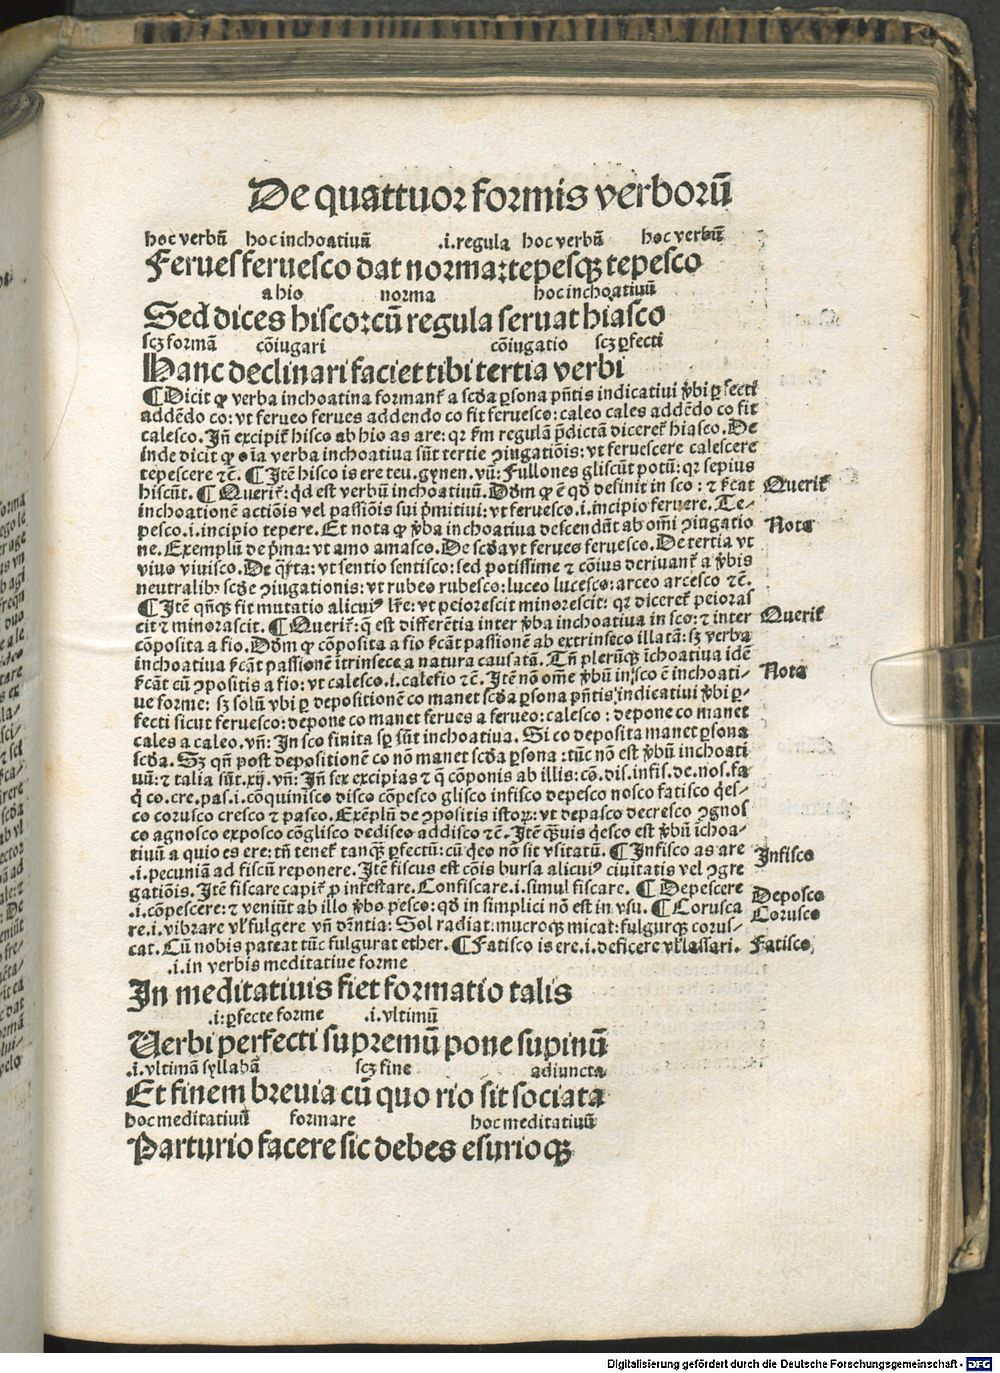 De quattuor formis verborū
hoc verbū hoc inchoatiuū .i. regula hoc verbū hoc verbū
Ferues feruesco dat normaꝫ tepesqꝫ tepesco
a hio norma hoc inchoatiuū
Sed dices hiscoꝛ cū regula seruat hiasco
scꝫ formā cōiugari cōiugatio scꝫ ꝑfecti
Hanc declinari faciet tibi tertia verbi
¶ Dicit ꝙ verba inchoatina formanꝉ a scd́a ꝑsona pn̄tis indicatiui v̓bi ꝑfecti
addēdo co: vt ferueo ferues addendo co fit feruesco: caleo cales addēdo co fit
calesco. Jn̄ excipiꝉ hisco ab hio as are: qꝛ ẜm regulā p̄dictā dicereꝉ hiasco. De
inde dicit ꝙ oīa verba inchoatiua sūt tertie ↄiugatiōis: vt feruescere calescere
tepescere ⁊c̄. ¶ Jtē hisco is ere teu. gynen. vñ: Fullones gliscūt potū: qꝛ sepius
hiscūt. ¶ Queriꝉ: qd́ est verbū inchoatiuū. Dd́m ꝙ ē qd́ desinit in sco: ⁊ ẜcat
inchoationē actiōis vel passiōis sui p̄mitiui: vt feruesco .i. incipio feruere. Te-
pesco .i. incipio tepere. Et nota ꝙ v̓ba inchoatiua descendūt ab om̄i ↄiugatio
ne. Exemplū de p̄ma: vt amo amasco. De scd́a vt ferueo feruesco. De tertia vt
viuo viuisco. De q̄rta: vt sentio sentisco: sed potissime ⁊ cōius deriuanꝉ a v̓bis
neutralibꝰ scd́e ↄiugationis: vt rubeo rubesco: luceo lucesco: arceo arcesco ⁊c̄.
¶ Jtē qn̄qꝫ fit mutatio alicuiꝰ lr̄e: vt peiorescit minorescit: qꝛ dicereꝉ peioras
cit ⁊ minorascit. ¶ Queriꝉ: q̄ est differētia inter v̓ba inchoatiua in sco: ⁊ inter
cōposita a fio. Dd́m ꝙ cōposita a fio ẜcāt passionē ab extrinseco illatā: sꝫ verba
inchoatiua ẜcāt passionē ītrinsece a natura causatā. Tn̄ plerūqꝫ īchoatiua idē
ẜcāt cū ↄpositis a fio: vt calesco .i. calefio ⁊c̄. Jtē nō om̄e v̓bū in sco ē inchoati-
ue forme: sꝫ solū vbi ꝑ depositionē co manet scd́a ꝑsona pn̄tis indicatiui v̓bi ꝑ-
fecti sicut feruesco: depone co manet ferues a ferueo: calesco: depone co manet
cales a caleo. vñ: Jn sco finita sꝑ sūt inchoatiua. Si co deposita manet ꝑsona
scd́a. Sꝫ qn̄ post depositionē co nō manet scd́a ꝑsona: tūc nō est v̓bū inchoati
uū: ⁊ talia sūt .xij. vñ: Jn̄ sex excipias ⁊ q̄ cōponis ab illis: cō. dis. infis. de. nos. fa
q̄ co. cre. pas .i. cōquinisco disco cōpesco glisco infisco depesco nosco fatisco q̄es-
co corusco cresco ⁊ pasco. Exēplū de ↄpositis istoꝝ: vt depasco decresco ↄgnos
co agnosco exposco cōglisco dedisco addisco ⁊c̄. Jtē q̄uis q̄esco est v̓bū īchoa-
tiuū a quio es ere: tn̄ teneꝉ tanqꝫ ꝑfectū: cū q̄eo nō sit vsitatū. ¶ Jnfisco as are
.i. pecuniā ad fiscū reponere. Jtē fiscus est cōis bursa alicuiꝰ ciuitatis vel ↄgre
gatiōis. Jtē fiscare capiꝉ ꝓ infestare. Confiscare .i. simul fiscare. ¶ Depescere
.i. cōpescere: ⁊ veniūt ab illo v̓bo pesco: qd́ in simplici nō est in vsu. ¶ Corusca
re .i. vibrare vꝉ fulgere vñ dr̄ntia: Sol radiat: mucroqꝫ micat: fulgurqꝫ corus-
cat. Cū nobis pateat tūc fulgurat ether. ¶ Fatisco is ere .i. deficere vꝉ lassari.
Queriꝉ
Nota
Queriꝉ
Nota
Jnfisco
Deposco
Corusco
Fatisco
.i. in verbis meditatiue forme
Jn meditatiuis fiet formatio talis
.i. ꝑfecte forme .i. vltimū
Verbi perfecti supremū pone supinū
.i. vltimā syllabā scꝫ fine adiuncta
Et finem breuia cū quo rio sit sociata
hoc meditatiuū formare hoc meditatiuū
Parturio facere sic debes esurioqꝫ
Digitalisierung gefördert durch die Deutsche Forschungsgemeinschaft - DFG